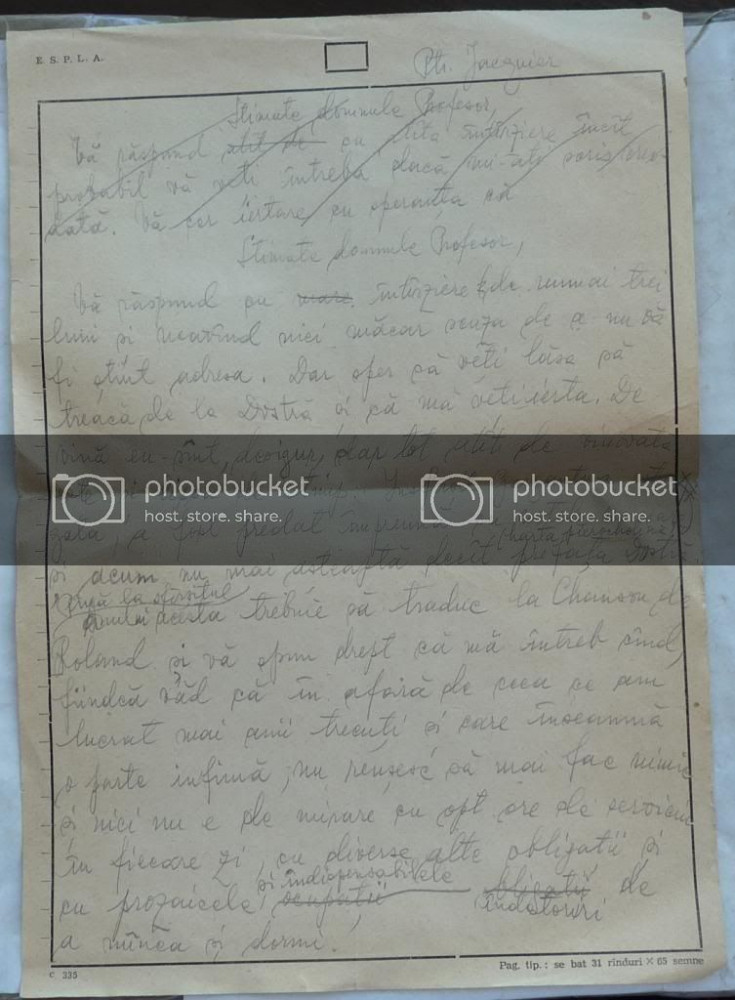 E. S. P. L. A.
Ph. Jacquier
Stimate domnule Profesor,
Vă răspund atît de cu atîta întîrziere încît
probabil vă veți întreba dacă mi-ați scris vreo-
dată. Vă cer iertare cu speranța că
Stimate domnule Profesor,
Vă răspund cu mare întîrziere de numai trei
luni și neavînd nici măcar scuza de a nu vă
fi știut adresa. Dar sper că veți lăsa să
treacă de la Dvstră și că mă veți ierta. De
vină eu sînt, desigur, dar tot atît de vinovată
photobucket photobucket
host. store. share. host. store. share.
gata, a fost predat împreună
și acum nu mai așteaptă decît prefața Dvstră
Pînă la sfîrșitul
anului acesta trebuie să traduc la Chanson de
Roland și vă spun drept că mă întreb cînd,
fiindcă văd că în afară de ceea ce am
lucrat mai anii trecuți și care înseamnă
o parte infimă, nu reușesc să mai fac nimic
și nici nu e de mirare cu opt ore de serviciu
în fiecare zi, cu diverse alte obligații și
cu prozaicele și indispensabilele ocupații obligații îndatoriri de
a mînca și dormi!
C 335
Pag. tip.: se bat 31 rînduri × 65 semne